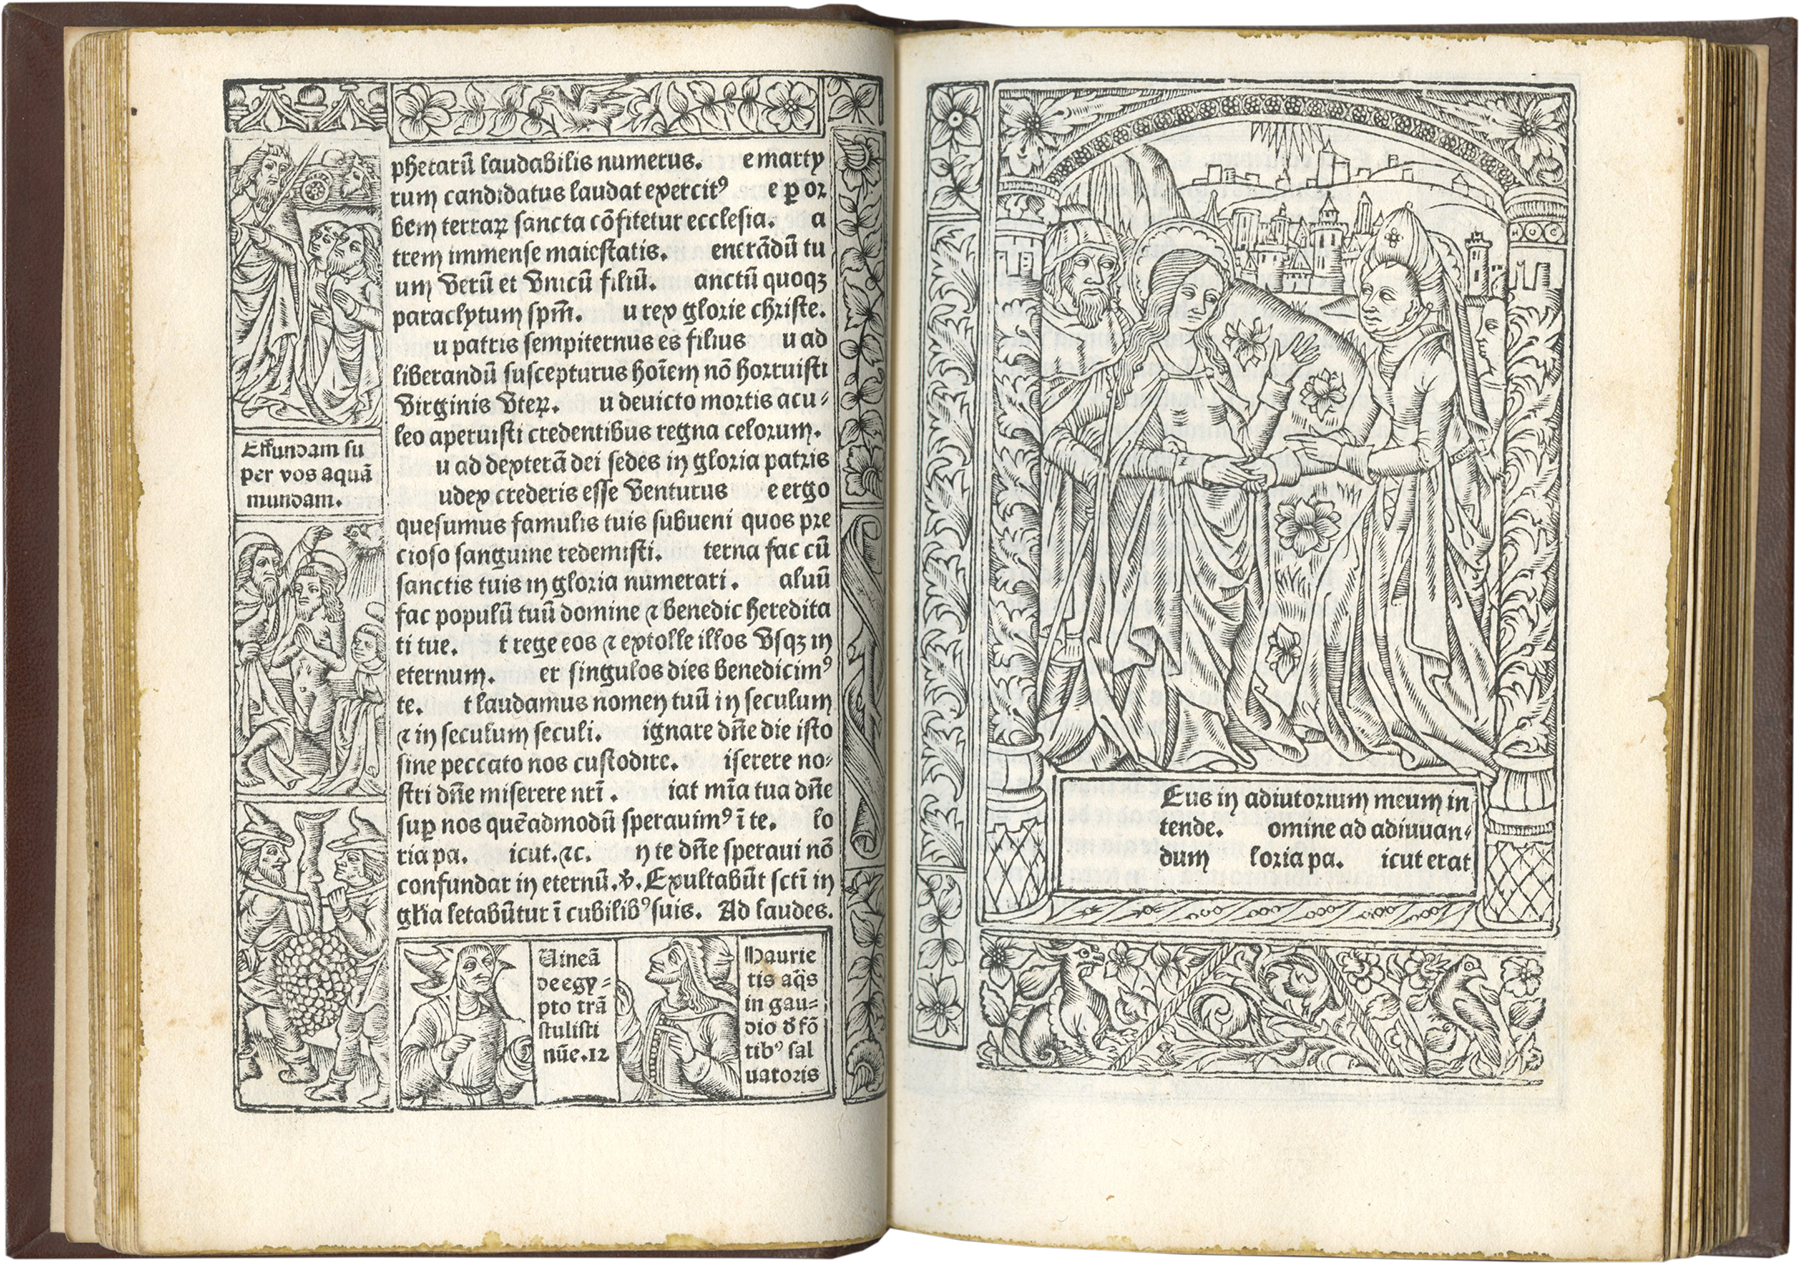 phetarū laudabilis numerus. e marty
rum candidatus laudat exercitꝰ e ꝑ or
bem terraꝝ sancta cōfitetur ecclesia. a
trem immense maiestatis. enerādū tu
um verū et vnicū filiū. anctū quoqꝫ
paraclytum spm̄. u rex glorie christe.
u patris sempiternus es filius u ad
liberandū suscepturus hoīem nō horruisti
virginis vteꝝ. u deuicto mortis acu⸗
leo aperuisti credentibus regna celorum.
u ad dexterā dei sedes in gloria patris
udex crederis esse venturus e ergo
quesumus famulis tuis subueni quos pre
cioso sanguine redemisti. terna fac cū
sanctis tuis in gloria numerari. aluū
fac populū tuū domine ⁊ benedic heredita
ti tue. t rege eos ⁊ extolle illos vsqꝫ in
eternum. er singulos dies benedicimꝰ
te. t laudamus nomen tuū in seculum
⁊ in seculum seculi. ignare dn̄e die isto
sine peccato nos custodire. iserere no⸗
stri dn̄e miserere nr̄i. iat mīa tua dn̄e
suꝑ nos quēadmodū sperauimꝰ ī te. lo
ria pa. icut. ⁊c. n te dn̄e speraui nō
confundar in eternū. ℣. Exultabūt sctī in
glīa letabūtur ī cubilibꝰ suis. Ad laudes.
Effundam su
per vos aquā
mundam.
Vineā
de egy⸗
pto trā
stulisti
nūe. 12
Haurie
tis aq̄s
in gau⸗
dio d̄ fō
tibꝰ sal
uatoris
Eus in adiutorium meum in
tende. omine ad adiuuan⸗
dum loria pa. icut erat